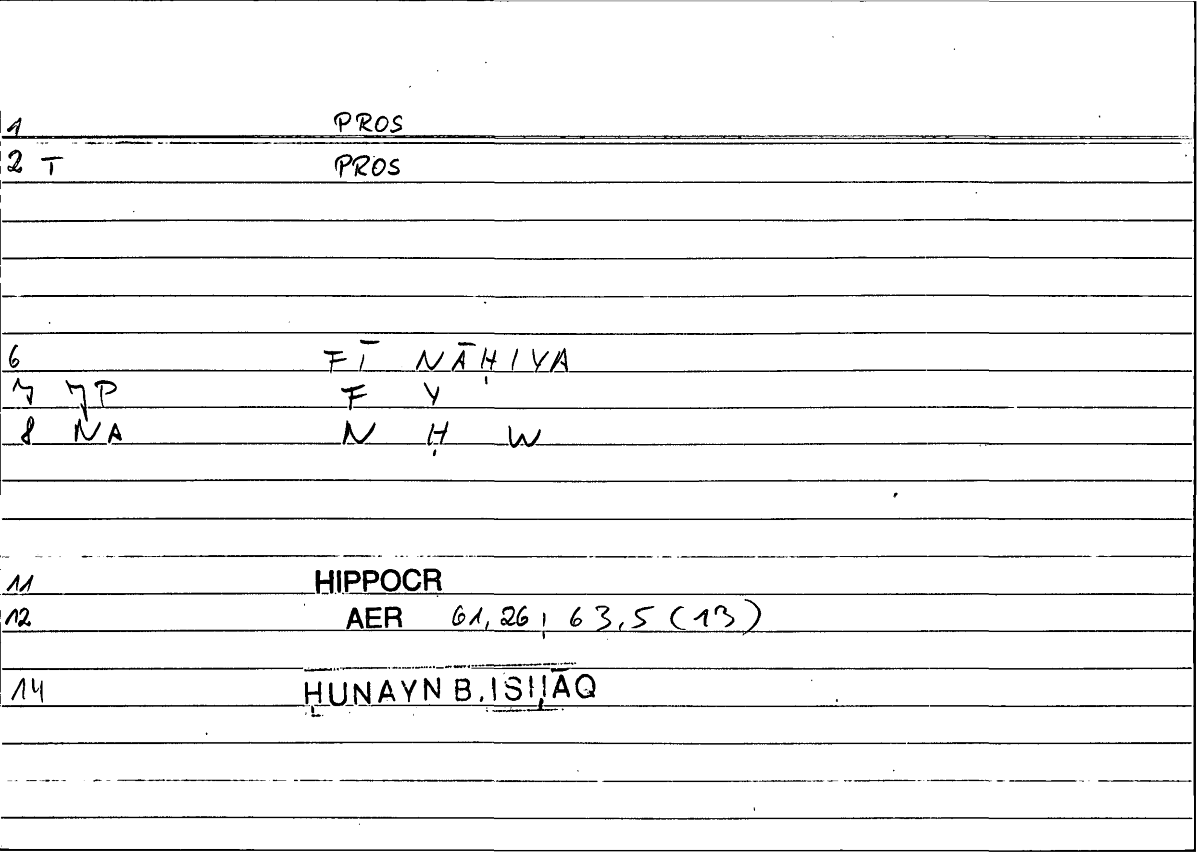 1 PROS
2 T PROS
6 FĪ NĀḤIYA
7 JP F Y
8 NA N Ḥ W
11 HIPPOCR
12 AER 61,26; 63,5 (13)
14 ḤUNAYN B. ISḤĀQ